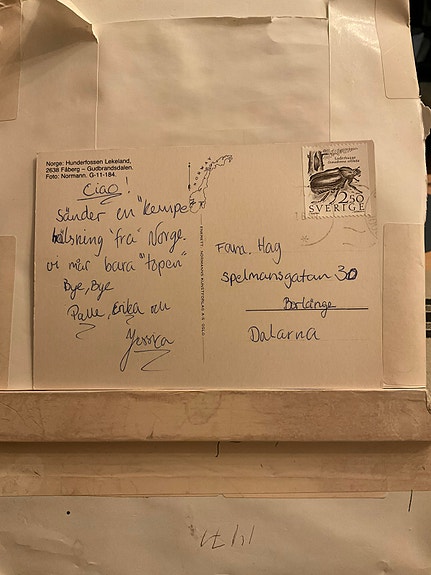 Norge: Hunderfossen Lekeland,
2638 Fåberg – Gudbrandsdalen.
Foto: Normann. G-11-184.
Ciao!
Sänder en "kempe
hälsning "fra" Norge.
vi mår bara "topen"
Bye, Bye
Palle, Erika och
Jessica
NORWAY
ENERETT: NORMANNS KUNSTFORLAG A/S, OSLO
2.50
SVERIGE
Fam. Hag
Spelmansgatan 30
Borlänge
Dalarna